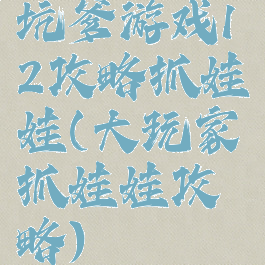 坑爹游戏1
2攻略抓娃
娃(大玩家
抓娃娃攻
略)